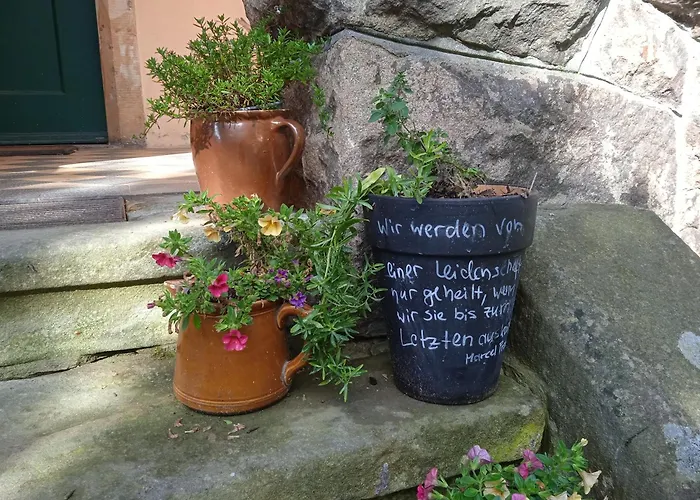 wir werden von
einer Leidenschaft
nur geheilt, wenn
wir sie bis zum
Letzten aus
Marcel